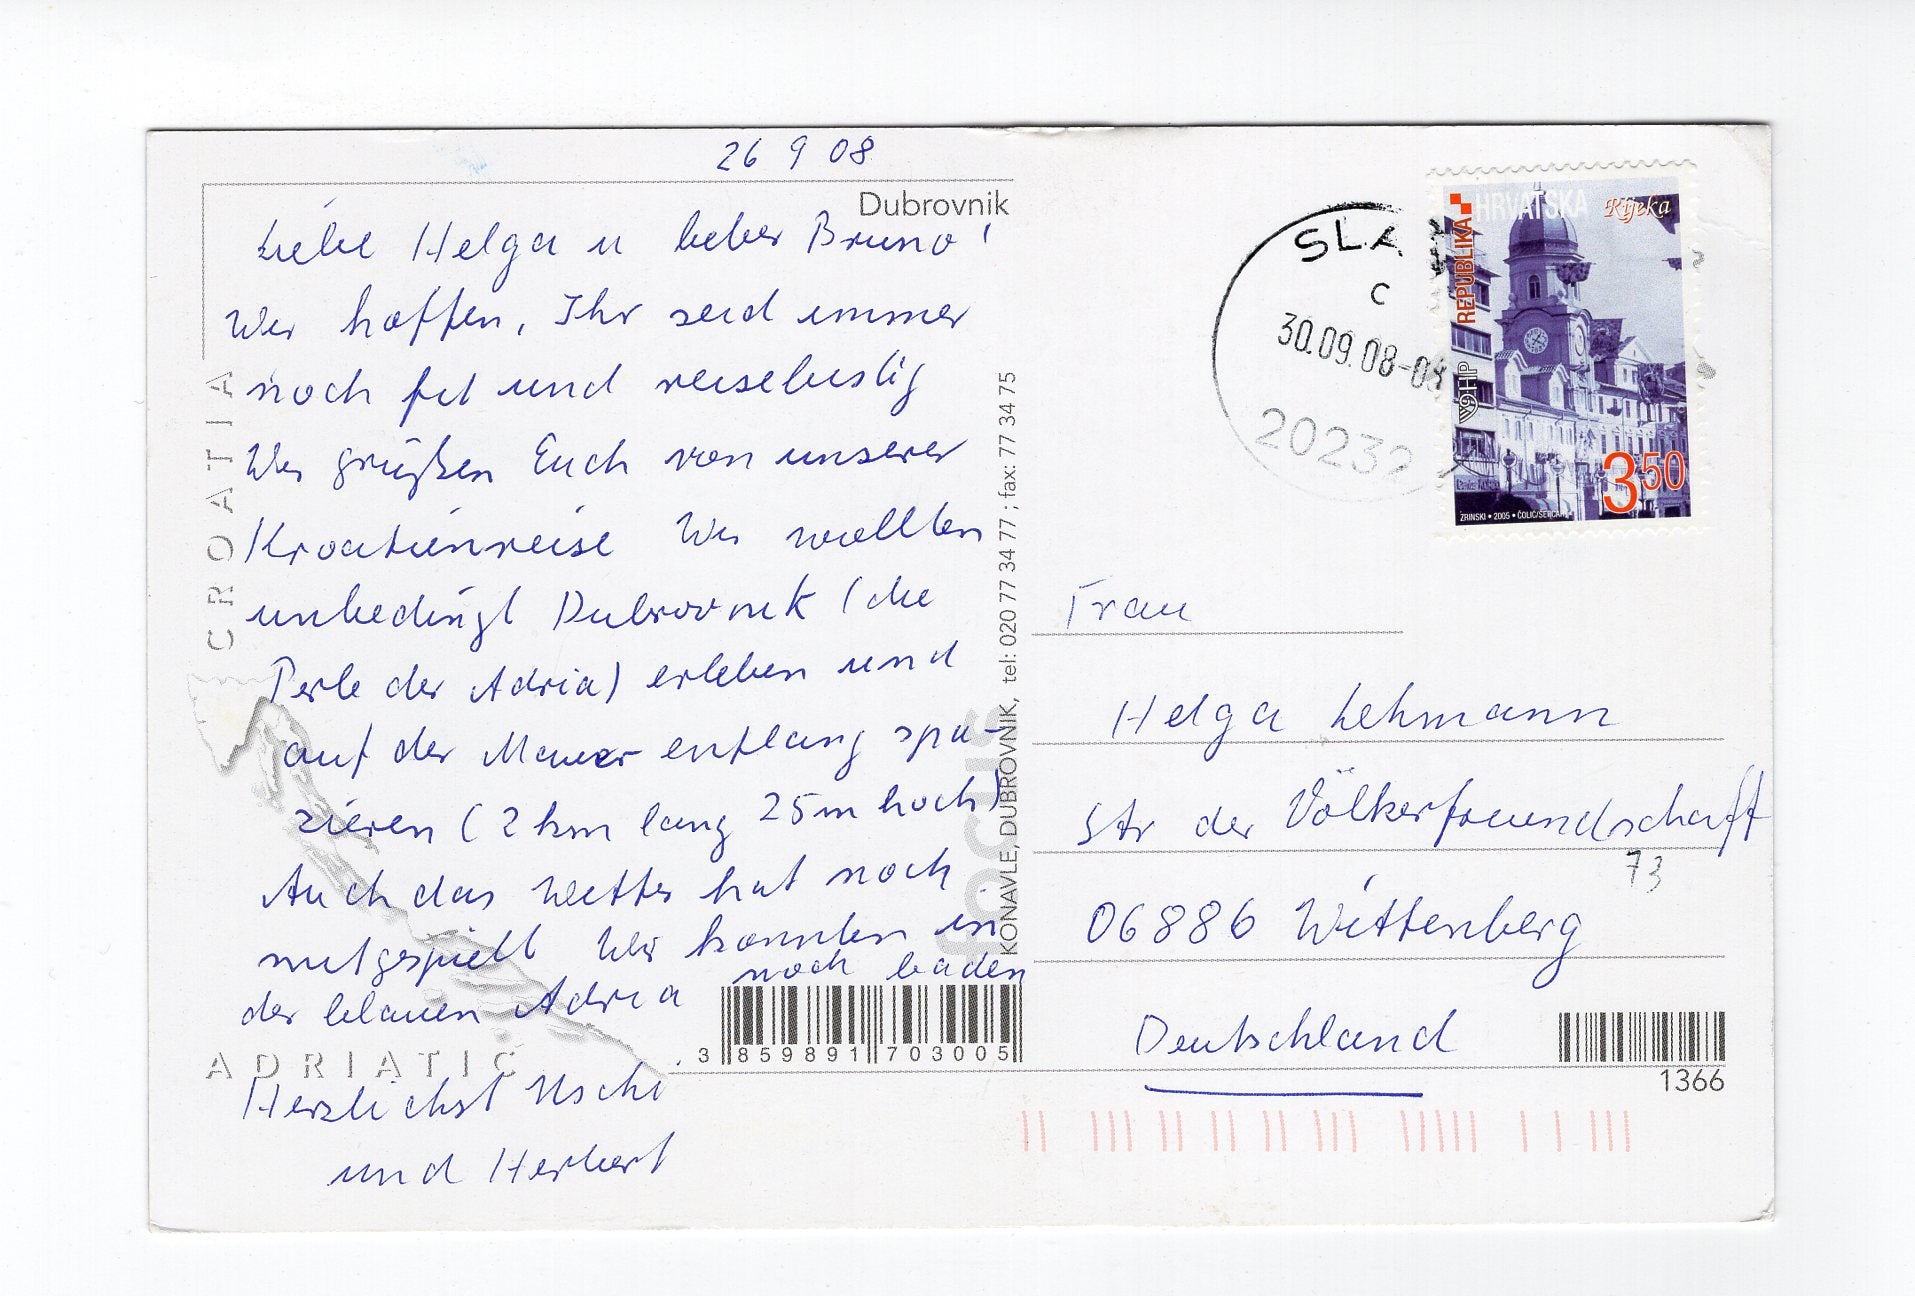 26 9 08
Dubrovnik
Liebe Helga u lieber Bruno!
Wir hoffen, Ihr seid immer
noch fit und reiselustig
Wir grüßen Euch von unserer
Kroatienreise Wir wollten
unbedingt Dubrovnik (die
Perle der Adria) erleben und
auf der Mauer entlang spa-
zieren (2 km lang 25m hoch)
Auch das Wetter hat noch
mitgespielt Wir konnten in
der blauen Adria noch baden
Herzlichst Uschi
und Herbert
CROATIA
ADRIATIC
3 859891 703005
focus
KONAVLE, DUBROVNIK, tel: 020 77 34 77 ; fax: 77 34 75
SLA
c
30.09.08-08
20232
REPUBLIKA HRVATSKA
Rijeka
HP
350
ZRINSKI • 2005 •
Frau
Helga Lehmann
Str der Völkerfreundschaft
73
06886 Wittenberg
Deutschland
1366